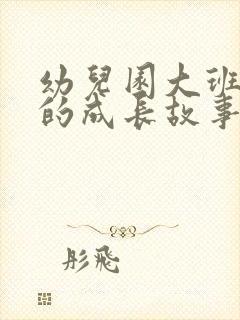 幼兒園大班
的成長故事
彤飛